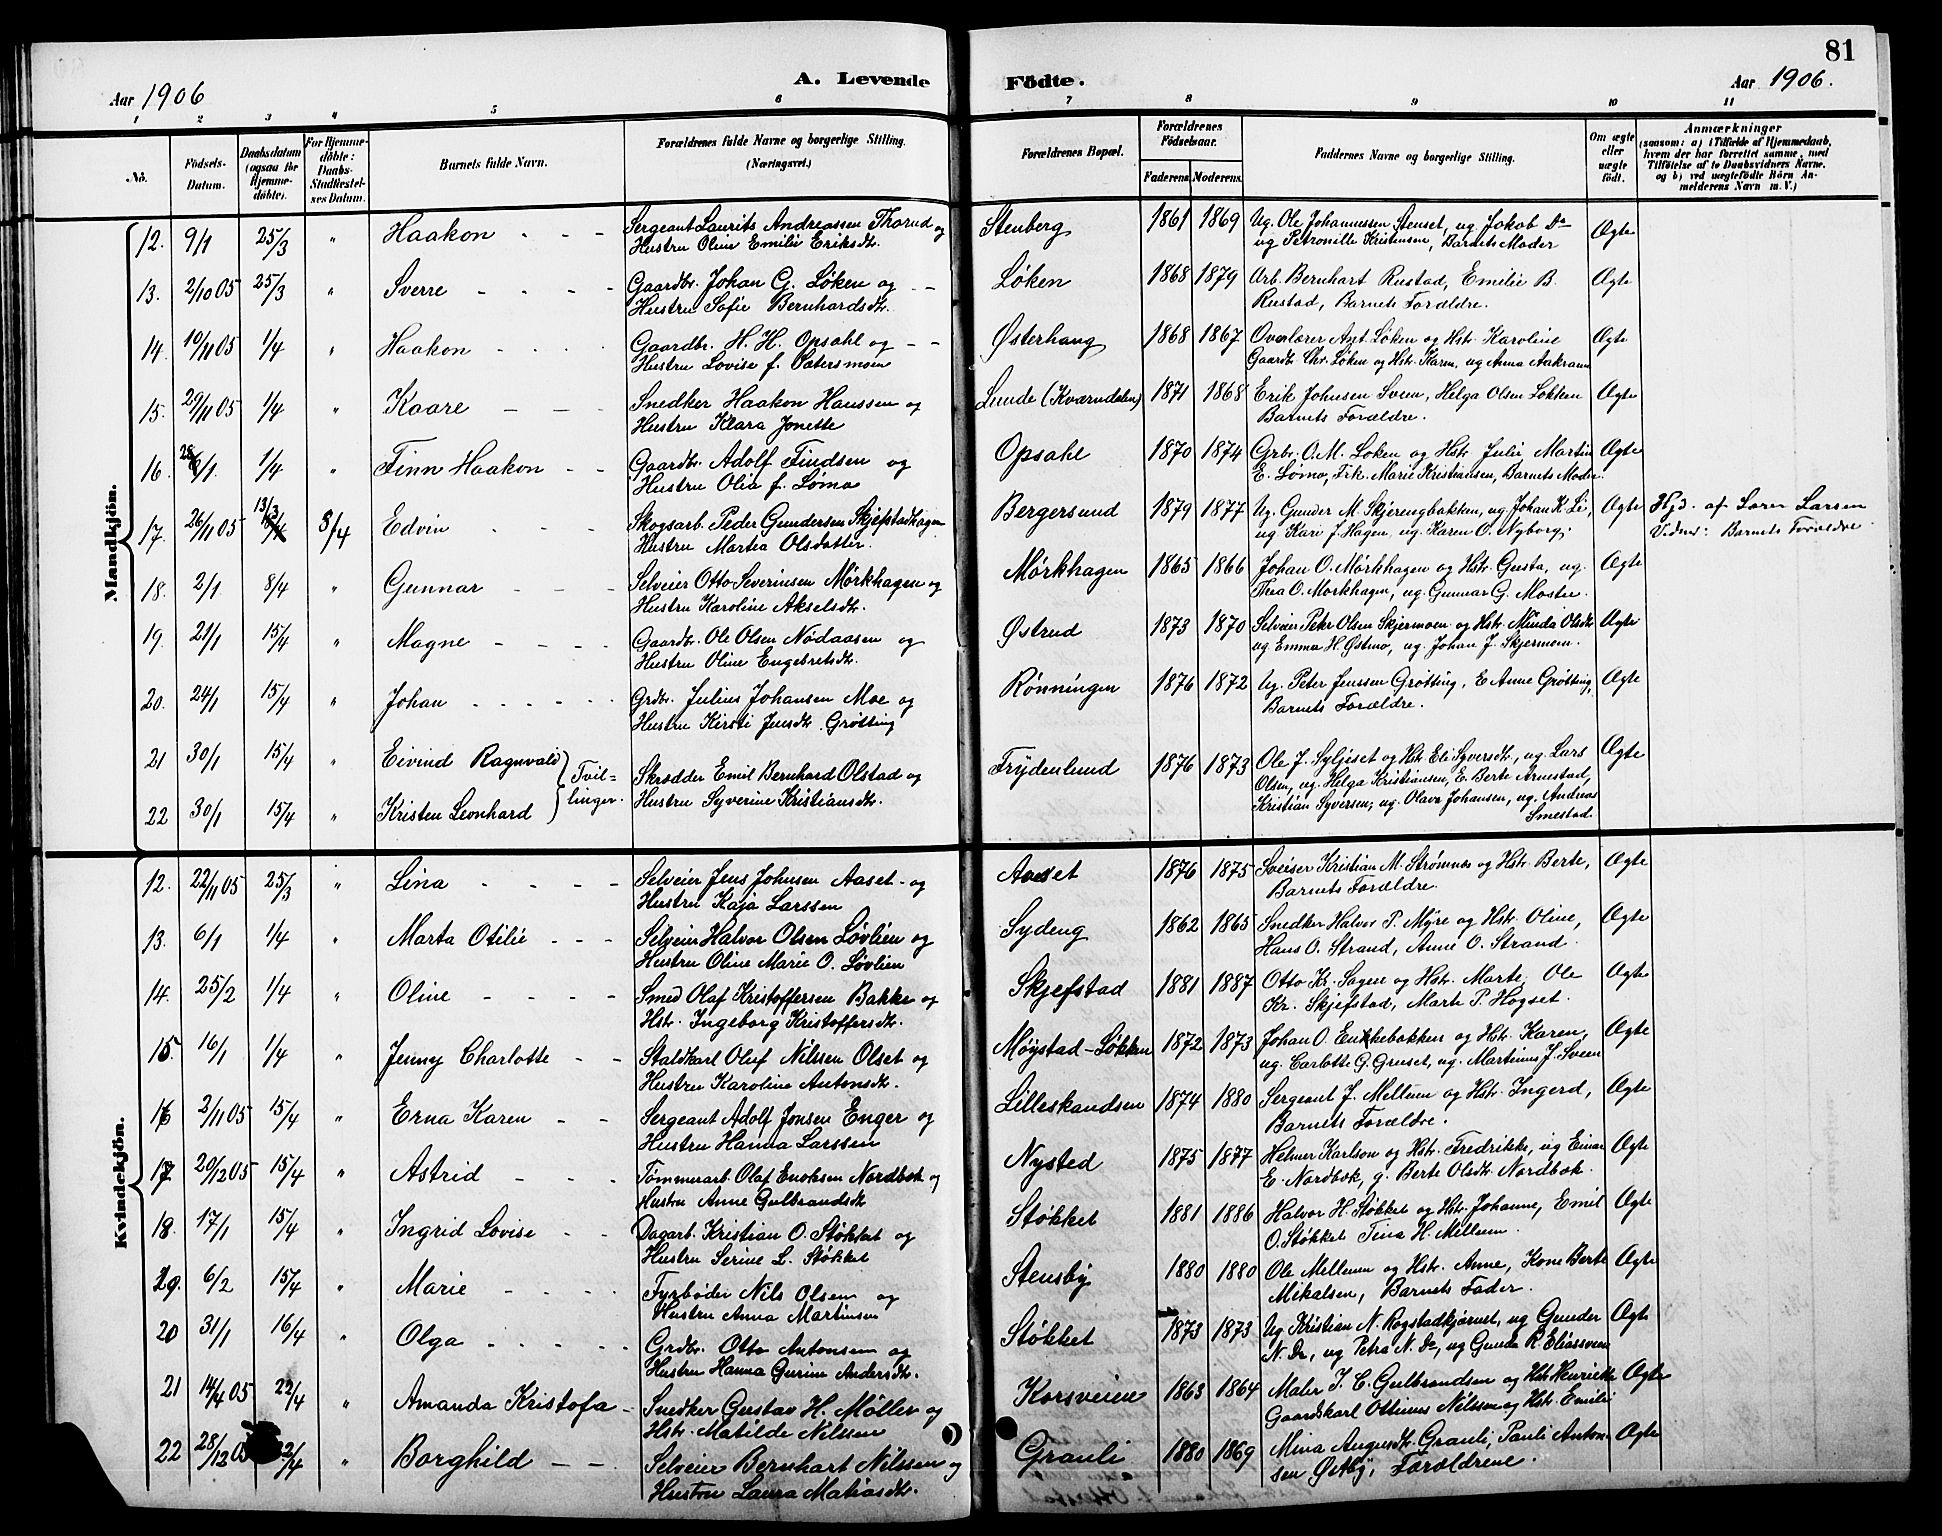 81
A. Levende Födte.
Aar 1906
Aar 1906.
1 2 3 4 5 6 7 8 9 10 11
No.
Födsels-Datum.
Daabsdatum (ogsaa for Hjemme-döbte).
For Hjemme-döbte: Daabs-Stadfæstel-ses Datum.
Barnets fulde Navn.
Forældrenes fulde Navne og borgerlige Stilling. (Næringsvei.)
Forældrenes Bopæl.
Forældrenes Födselsaar.
Faderens. Moderens.
Faddernes Navne og borgerlige Stilling.
Om ægte eller uægte födt.
Anmærkninger
(saasom: a) i Tilfælde af Hjemmedaab, hvem der har forrettet samme, med Tilföielse af to Daabsvidners Navne, og b) ved uægtefödte Börn An-melderens Navn m. V.)
Mandkjön.
12. 9/1 25/3 " Haakon - - - Sergeant Laurits Andreassen Thorud og Stenberg 1861 1869 Ug. Ole Johannessen Stenset, ug Jakob Do Ægte
Hustru Oline Emilie Eriksdtr. ug Petronille Kristensen, Barnets Moder
13. 2/10 05 25/3 " Sverre - - - - Gaardbr. Johan G. Løken og - - Løken 1868 1879 Arb. Bernhart Rustad, Emilie B. Ægte
Hustru Sofie Bernhardsdtr. Rustad, Barnets Forældre.
14. 19/11 05 1/4 " Haakon - - - - Gaardbr. H. H. Opsahl og - - Østerhaug 1868 1867 Overlærer Ant. Løken og Hstr. Karoline Ægte
Hustru Lovise f. Pætersmoen Gaardb. Chr. Løken og Hst. Karen, ug Anna Aakrann
15. 29/11 05 1/4 " Kaare - - - Snedker Haakon Hanssen og Lunde (Kværndalen) 1871 1868 Erik Johnsen Sveen, Helga Olsen Løkken Ægte
Hustru Klara Jonette Barnets Forældre.
16. 28/1 1/4 " Finn Haakon - - Gaardbr. Adolf Findsen og Opsahl 1870 1874 Grbr. O. M. Løken og Hstr. Julie, Martin Ægte
Hustru Olia f. Lømo E. Lømo, Frk. Marie Kristiansen, Barnets Moder.
17. 26/11 05 13/3 8/4 Edvin - - Skogsarb. Peder Gundersen Skjefstadhagen Bergersund 1879 1877 Ug. Gunder M. Skjerengbakken, ug. Johan K. Li, Ægte Hjd. af Loren Larsen
Hustru Martea Olsdatter. ug Kari J. Hagen, ug. Karen O. Nyborg; Vidner: Barnets Forældre
18. 2/1 8/4 " Gunnar - - - Selveier Otto Severinsen Mørkhagen og Mørkhagen 1865 1866 Johan O. Mørkhagen og Hstr. Gusta, ug. Ægte
Hustru Karoline Akselsdtr. Thea O. Mørkhagen, ug. Gunnar G. Moster.
19. 21/1 15/4 " Magne - - - - Gaardbr. Ole Olsen Nødaasen og Østrud 1873 1870 Selveier Peter Olsen Skjermoen og Hstr. Minda Olsdtr. Ægte
Hustru Oline Engebretsdtr. ug. Emma H. Østmo, ug. Johan J. Skjermoen.
20. 24/1 15/4 " Johan - - - - - Grdbr. Julius Johansen Moe og Rønningen 1876 1872 Ug. Peter Jenssen Grøtting, E Anne Grøtting, Ægte
Hustru Kirsti Jensdtr. Grøtting Barnets Forældre.
21 30/1 15/4 " Eivind Ragnvald Tvil-linger. Skrædder Emil Bernhard Olstad og Frydenlund 1876 1873 Ole J. Syljeset og Hstr. Eli Syversdtr, ug. Lars Ægte
Olsen, ug. Helga Kristiansen, E. Berte Arnestad,
22 30/1 15/4 " Kristen Leonhard Hustru Syverine Kristiansdtr. Kristian Syversen, ug. Olava Johansen, ug. Andreas Smestad.
Kvindekjön.
12. 22/11 05 25/3 " Lina - - - - Selveier Jens Johnsen Aaset - og Aaset 1876 1875 Sveiser Kristian M. Strømnes og Hstr. Berte, Ægte
Hustru Kaja Larssen Barnets Forældre.
13. 6/1 1/4 " Marta Otilie - - - Selveier Halvor Olsen Løvlien og Sydeng 1862 1865 Snedker Halvor P. Myre og Hstr. Oline, Ægte
Hustru Oline Marie O. Løvlien Hans O. Strand, Anne O. Strand.
14. 25/2 1/4 " Oline - - - - Smed Olaf Kristoffersen Bakke og Skjefstad 1881 1887 Otto Kr. Sagen og Hstr. Marte, Ole Ægte
Hstr. Ingeborg Kristoffersdtr. Kr. Skjefstad, Marte P. Høgset.
15. 16/1 1/4 " Jenny Charlotte - - Staldkarl Oluf Nilssen Olset og Møystad-Løkken 1872 1873 Johan O. Enkkebakken og Hstr. Karen, Ægte
Hustru Karoline Antonsdtr. ug. Carlotte G. Gruset, ug. Martinus J. Sveen
16 2/11 05 15/4 " Erna Karen - - Sergeant Adolf Jonsen Enger og Lilleskandsen 1874 1880 Sergeant J. Mellum og Hstr. Ingerd, Ægte
Hustru Hanna Larssen Barnets Forældre.
17. 20/12 05 15/4 " Astrid - - - Tømmerarb. Olaf Enoksen Nordbæk og Nysted 1875 1877 Helmer Karlson og Hstr. Fredrikke, ug Einar Ægte
Hustru Anne Gulbrandsdtr E. Nordbæk, g. Berte Olsdtr. Nordbæk.
18. 17/1 15/4 " Ingrid Lovise - - Dagarb. Kristian O. Støkket og Støkket 1881 1886 Halvor H. Støkket og Hstr. Johanne, Emil Ægte
Hustru Serine L. Støkket O. Støkket Tina H. Mellum
19. 6/2 15/4 " Marie - - - - Fyrbøder Nils Olsen og Stensby 1880 1880 Ole Mellum og Hstr. Anne, Kone Berte Ægte
Hustru Anna Martinsen Mikalsen, Barnets Fader.
20 31/1 16/4 " Olga - - - - - Grdbr. Otto Antonsen og Støkket 1873 1873 Ug. Kristian N. Rogstadkjærnet, ug Gunder Ægte
Hustru Hanna Gurine Andersdtr. N. Do, ug Petra N. Do, ug Gunda R. Eliassveen
21 14/4 05 22/4 " Amanda Kristofa - Snedker Gustav H. Møller og Korsveien 1863 1864 Maler J. C. Gulbrandsen og Hstr. Henriette Ægte
Hstr. Matilde Nilssen Gaardskarl Ottinus Nilssen og Hstr Emilie
22 28/12 05 22/4 " Borghild - - Selveier Bernhart Nilssen og Grauli 1880 1869 Mina Augustdtr. Grauli, Pauli Anton- Ægte
Hustru Laura Matiasdtr. sen Østby, Forældrene.